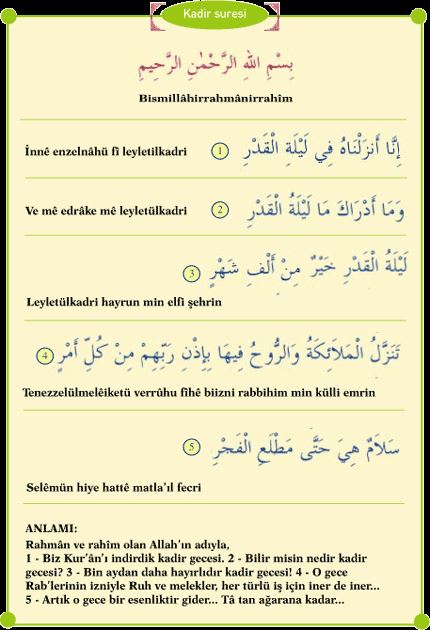 Kadir suresi
بِسْمِ اللهِ الرَّحْمٰنِ الرَّحِيمِ
Bismillâhirrahmânirrahîm
İnnê enzelnâhü fî leyletilkadri 1 إِنَّا أَنزَلْنَاهُ فِي لَيْلَةِ الْقَدْرِ
Ve mê edrâke mê leyletülkadri 2 وَمَا أَدْرَاكَ مَا لَيْلَةُ الْقَدْرِ
لَيْلَةُ الْقَدْرِ خَيْرٌ مِنْ أَلْفِ شَهْرٍ 3
Leyletülkadri hayrun min elfi şehrin
تَنَزَّلُ الْمَلَائِكَةُ وَالرُّوحُ فِيهَا بِإِذْنِ رَبِّهِمْ مِنْ كُلِّ أَمْرٍ 4
Tenezzelülmelêiketü verrûhu fîhê biizni rabbihim min külli emrin
سَلَامٌ هِيَ حَتَّى مَطْلَعِ الْفَجْرِ 5
Selêmün hiye hattê matla'ıl fecri
ANLAMI:
Rahmân ve rahîm olan Allah'ın adıyla,
1 - Biz Kur'ân'ı indirdik kadir gecesi. 2 - Bilir misin nedir kadir
gecesi? 3 - Bin aydan daha hayırlıdır kadir gecesi! 4 - O gece
Rab'lerinin izniyle Ruh ve melekler, her türlü iş için iner de iner...
5 - Artık o gece bir esenliktir gider... Tâ tan ağarana kadar...